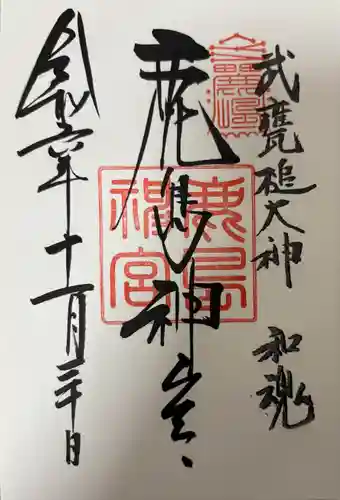 武甕槌大神
和魂
鹿島神宮
鹿島
神宮
令和六年十一月三十日